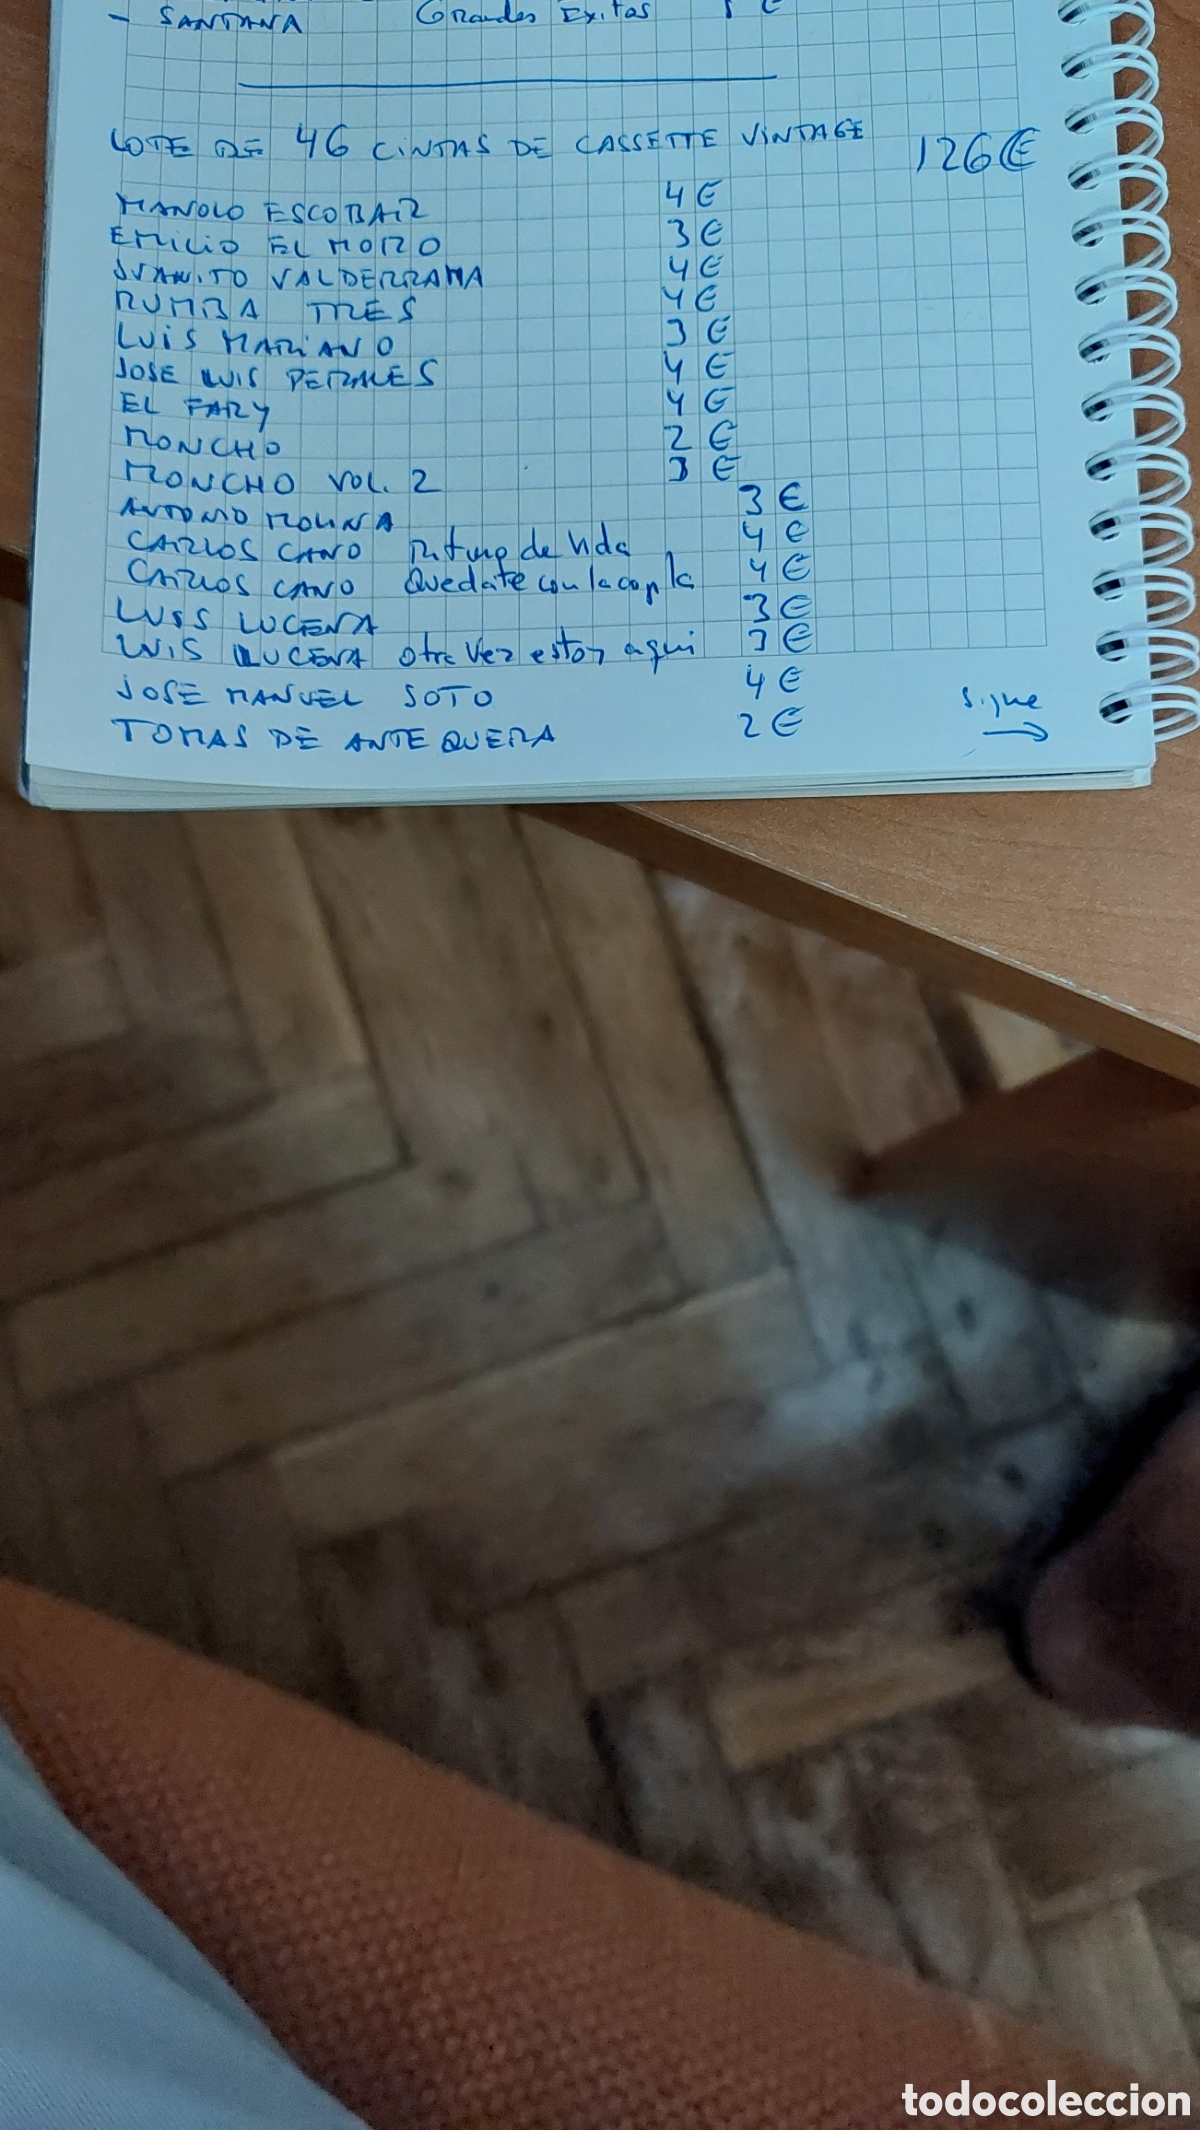 - SANTANA Grandes Exitos €
LOTE DE 46 CINTAS DE CASSETTE VINTAGE 126€
MANOLO ESCOBAR 4 €
EMILIO EL MORO 3 €
JUANITO VALDERRAMA 4 €
RUMBA TRES 4 €
LUIS MARIANO 3 €
JOSE LUIS PERALES 4 €
EL FARY 4 €
MONCHO 2 €
MONCHO VOL. 2 3 €
ANTONIO MOLINA 3 €
CARLOS CANO Ritmo de Vida 4 €
CARLOS CANO Quedate con la copla 4 €
LUIS LUCENA 3 €
LUIS LUCENA otra vez estoy aqui 3 €
JOSE MANUEL SOTO 4 €
TOMAS DE ANTEQUERA 2 €
Sigue →
todocoleccion